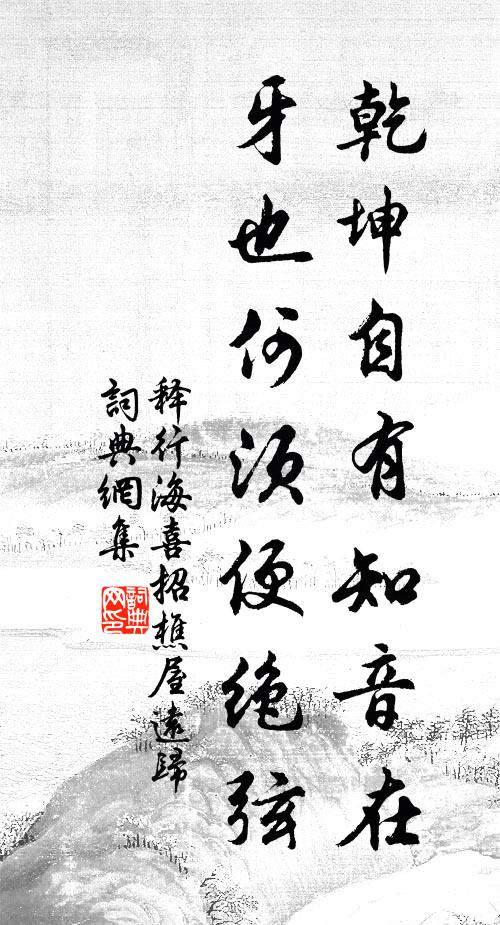 乾坤自有知音在
牙也何須便绝弦
释行海喜招樵屋遠歸
詞典網集
詞典
网印